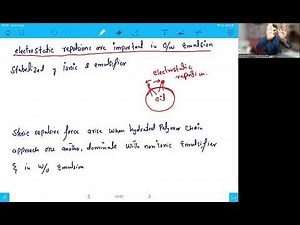 electrostatic repulsions are important in O/W Emulsion
Stabelized y ionic s emulsifier
electrostatic
repulsion.
oil
Steric repulsive force arise when hydrated Polymer chain
approach one another, dominate with nonionic Emulsifier
& in W/O Emulsion